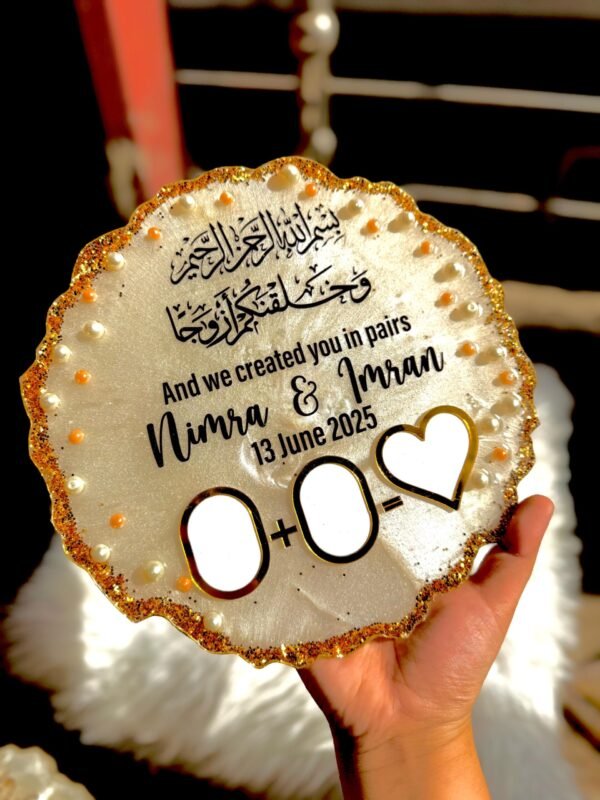 بسم الله الرحمن الرحيم
وخلقنكم أزوجا
And we created you in pairs
Nimra & Imran
13 June 2025
+ =